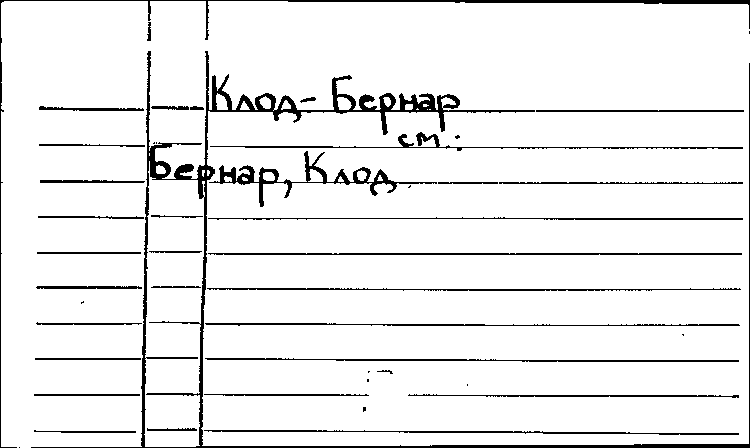 Клод-Бернар
см.:
Бернар, Клод